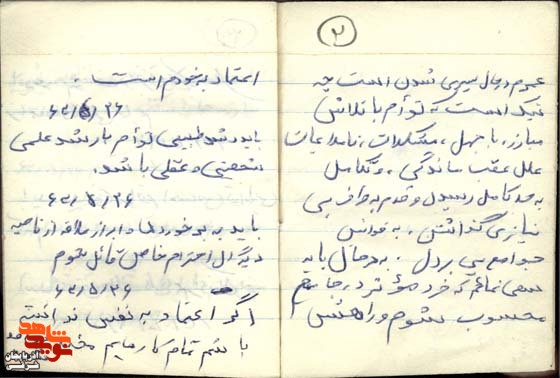 ۲
عمرم در حال سپری شدن است چه
نیک است که توأم با تلاش
مبارزه با جهل، مشکلات، ناملایمات
علل عقب ماندگی، و تکامل
به حد کامل رسیدن و قدم به طرف بی
نیازی گذاشتن، به
جوامع پی بردن. به هر حال باید
سعی نمائم که فرد مؤثر در جامعه ام
محسوب شوم و راهش
اعتماد به خودم است.
۶۲/۵/۲۶
باید رشد طبیعی توأم با رشد علمی
شخصیتی و عقلی باشد.
۶۲/۵/۲۶
باید به برخوردها دار از علاقه از ناحیه
دیگران احترام خاص قائل شوم
۶۲/۵/۲۶
اگر اعتماد به نفس نداشته
باشم تمام کارهایم
شاهد
نوید
آذربایجان